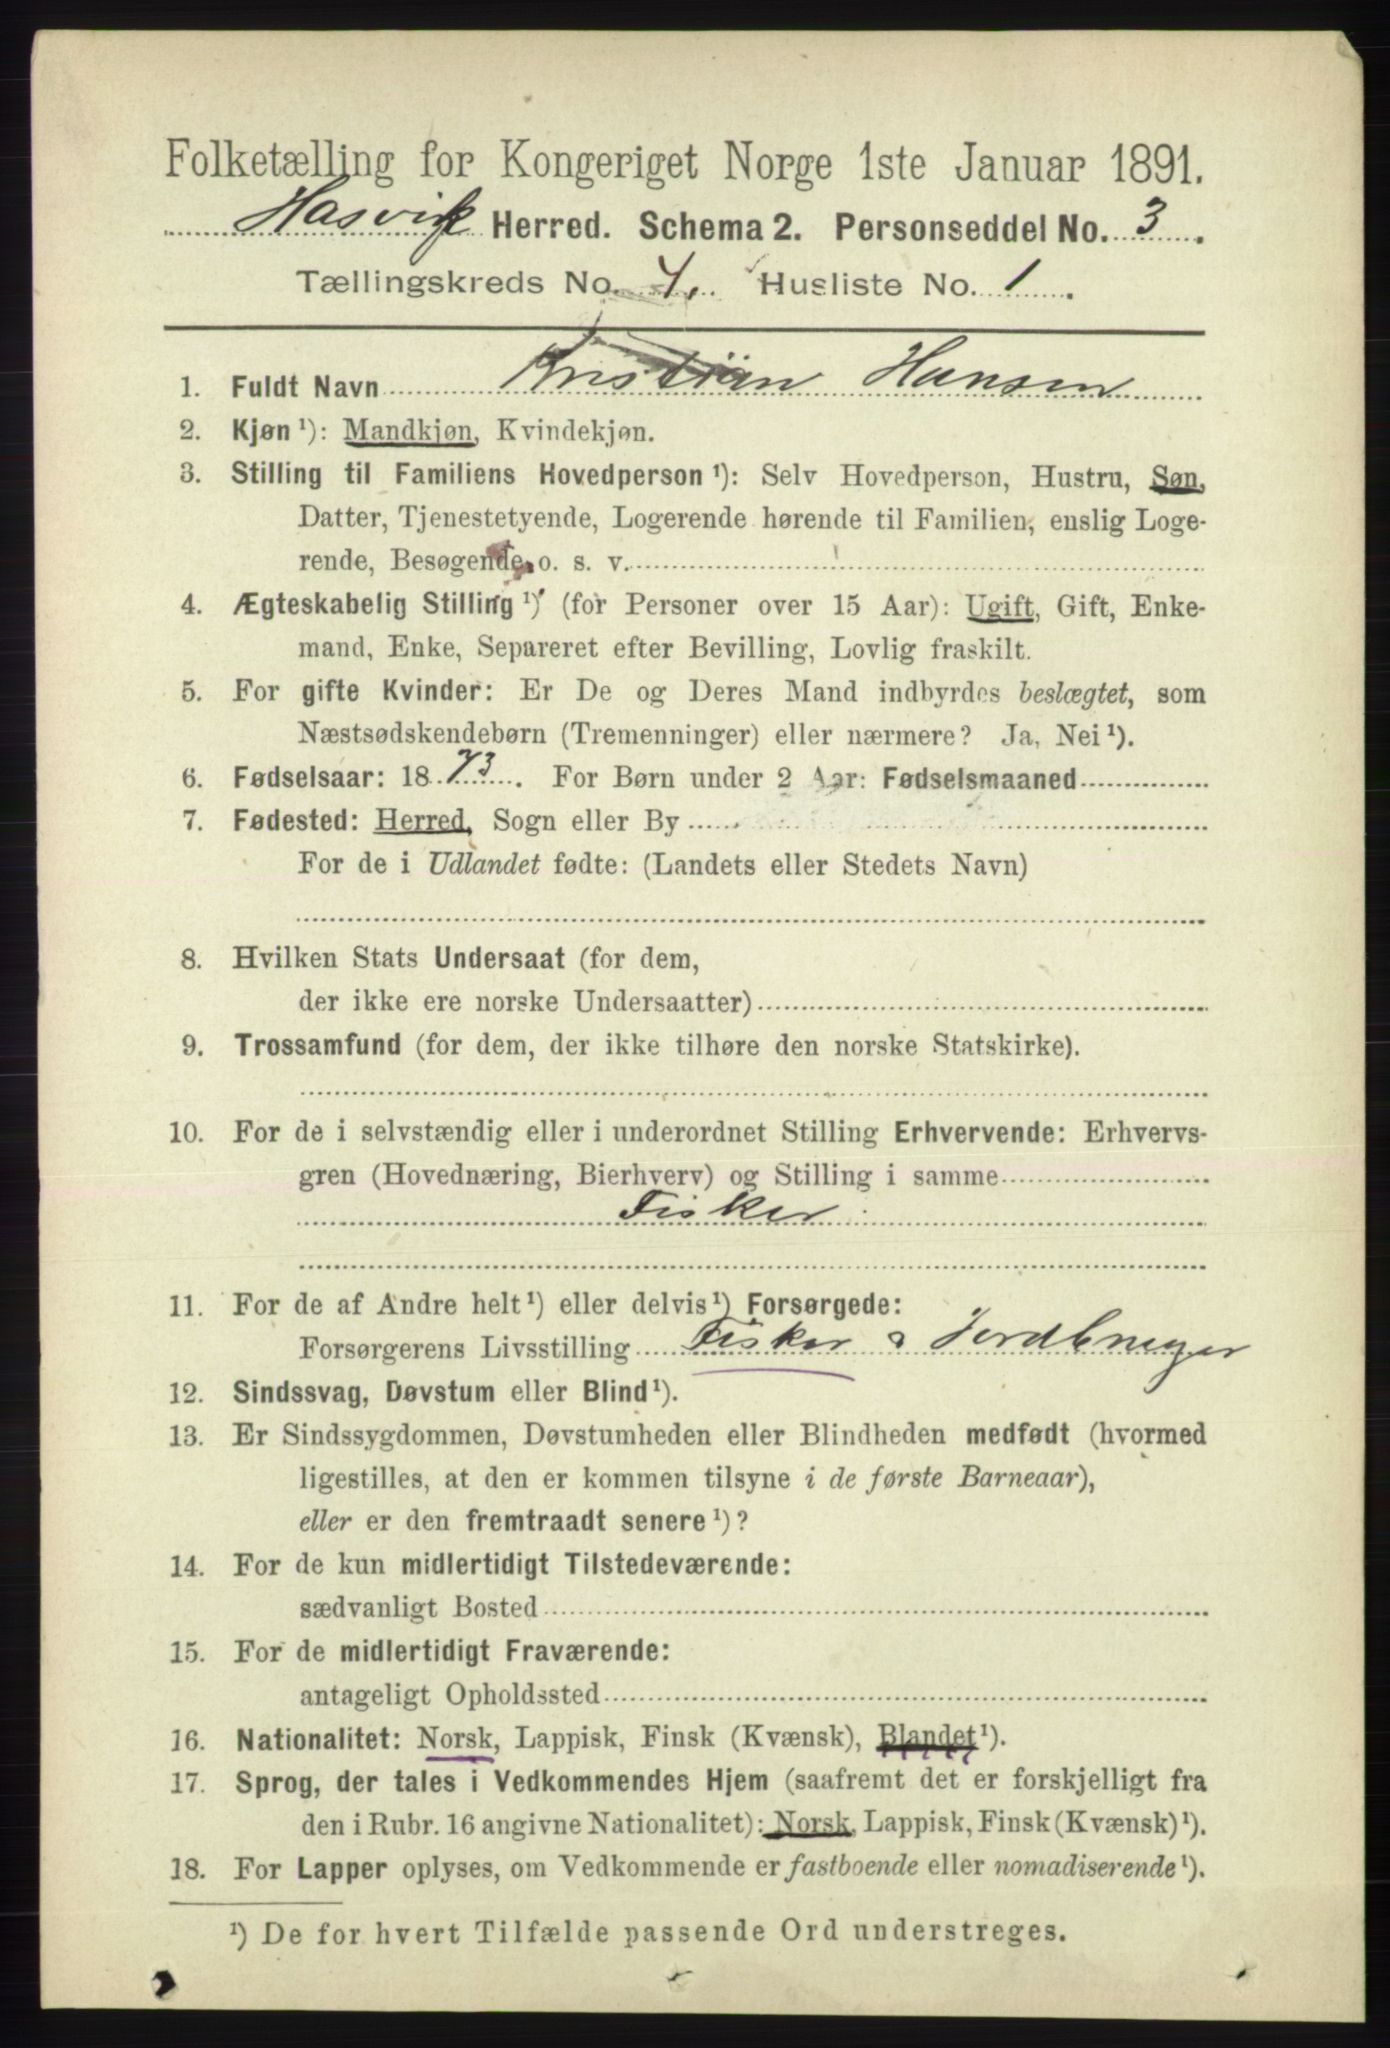 Folketælling for Kongeriget Norge 1ste Januar 1891.
Hasvik Herred. Schema 2. Personseddel No. 3.
Tællingskreds No. 4. Husliste No. 1.
1. Fuldt Navn Kristian Hansen
2. Kjøn ¹): Mandkjøn, Kvindekjøn.
3. Stilling til Familiens Hovedperson ¹): Selv Hovedperson, Hustru, Søn,
Datter, Tjenestetyende, Logerende hørende til Familien, enslig Loge-
rende, Besøgende o. s. v.
4. Ægteskabelig Stilling ¹) (for Personer over 15 Aar): Ugift, Gift, Enke-
mand, Enke, Separeret efter Bevilling, Lovlig fraskilt.
5. For gifte Kvinder: Er De og Deres Mand indbyrdes beslægtet, som
Næstsødskendebørn (Tremenninger) eller nærmere? Ja, Nei ¹).
6. Fødselsaar: 1873. For Børn under 2 Aar: Fødselsmaaned
7. Fødested: Herred, Sogn eller By
For de i Udlandet fødte: (Landets eller Stedets Navn)
8. Hvilken Stats Undersaat (for dem,
der ikke ere norske Undersaatter)
9. Trossamfund (for dem, der ikke tilhøre den norske Statskirke).
10. For de i selvstændig eller i underordnet Stilling Erhvervende: Erhvervs-
gren (Hovednæring, Bierhverv) og Stilling i samme
Fisker
11. For de af Andre helt ¹) eller delvis ¹) Forsørgede:
Forsørgerens Livsstilling Fisker & Jordbruger
12. Sindssvag, Døvstum eller Blind ¹).
13. Er Sindssygdommen, Døvstumheden eller Blindheden medfødt (hvormed
ligestilles, at den er kommen tilsyne i de første Barneaar),
eller er den fremtraadt senere ¹)?
14. For de kun midlertidigt Tilstedeværende:
sædvanligt Bosted
15. For de midlertidigt Fraværende:
antageligt Opholdssted
16. Nationalitet: Norsk, Lappisk, Finsk (Kvænsk), Blandet ¹).
17. Sprog, der tales i Vedkommendes Hjem (saafremt det er forskjelligt fra
den i Rubr. 16 angivne Nationalitet): Norsk, Lappisk, Finsk (Kvænsk) ¹).
18. For Lapper oplyses, om Vedkommende er fastboende eller nomadiserende ¹).
¹) De for hvert Tilfælde passende Ord understreges.